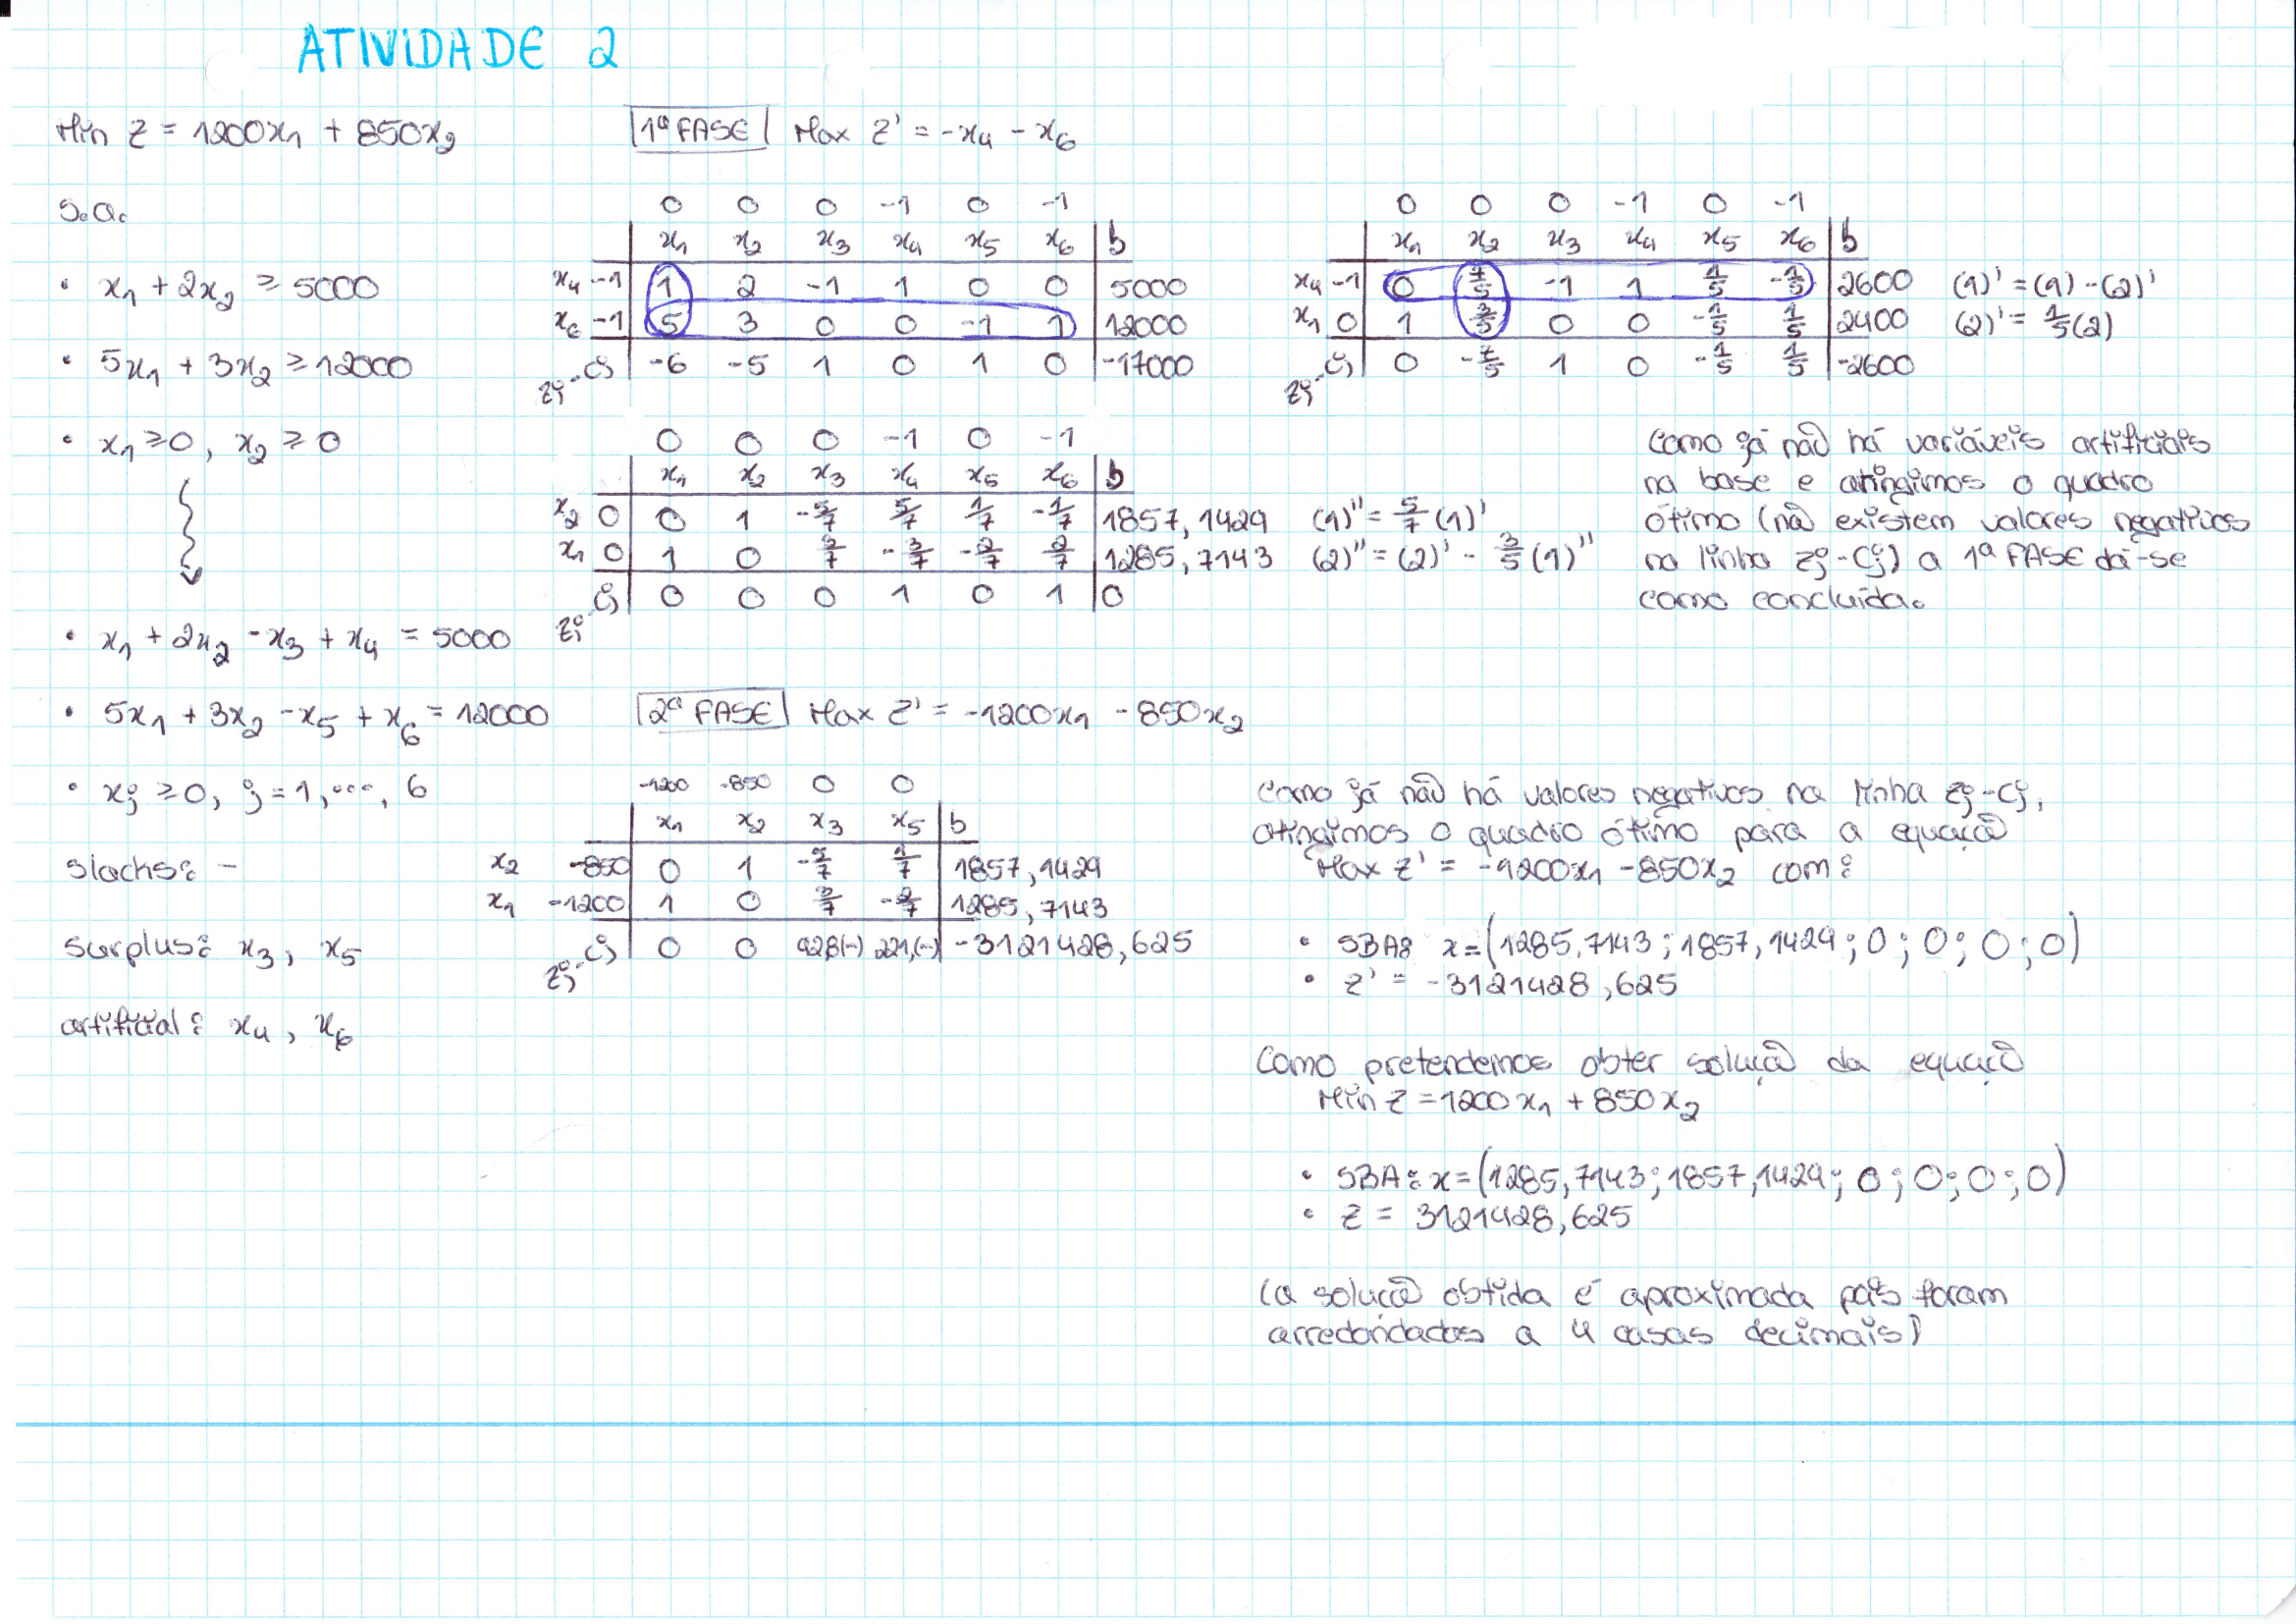 ATIVIDADE 2
Min Z = 1200x₁ + 850x₂
s.a.
• x₁ + 2x₂ ≥ 5000
• 5x₁ + 3x₂ ≥ 12000
• x₁ ≥ 0, x₂ ≥ 0
• x₁ + 2x₂ - x₃ + x₄ = 5000
• 5x₁ + 3x₂ - x₅ + x₆ = 12000
• xⱼ ≥ 0, j = 1, ..., 6
slacks: -
surplus: x₃, x₅
artificial: x₄, x₆
1ª FASE | Max Z' = -x₄ - x₆
0 0 0 -1 0 -1
x₁ x₂ x₃ x₄ x₅ x₆ | b
x₄ -1 | 1 2 -1 1 0 0 | 5000
x₆ -1 | 5 3 0 0 -1 1 | 12000
zⱼ-cⱼ | -6 -5 1 0 1 0 | -17000
0 0 0 -1 0 -1
x₁ x₂ x₃ x₄ x₅ x₆ | b
x₄ -1 | 0 7/5 -1 1 1/5 -1/5 | 2600 (1)' = (1) - (2)'
x₁ 0 | 1 3/5 0 0 -1/5 1/5 | 2400 (2)' = 1/5 (2)
zⱼ-cⱼ | 0 -7/5 1 0 -1/5 1/5 | -2600
0 0 0 -1 0 -1
x₁ x₂ x₃ x₄ x₅ x₆ | b
x₂ 0 | 0 1 -5/7 5/7 1/7 -1/7 | 1857,1429 (1)'' = 5/7 (1)'
x₁ 0 | 1 0 3/7 -3/7 -2/7 2/7 | 1285,7143 (2)'' = (2)' - 3/5 (1)''
zⱼ-cⱼ | 0 0 0 1 0 1 | 0
Como já não há variáveis artificiais
na base e atingimos o quadro
ótimo (não existem valores negativos
na linha zⱼ-cⱼ) a 1ª FASE dá-se
como concluída.
2ª FASE | Max Z' = -1200x₁ - 850x₂
-1200 -850 0 0
x₁ x₂ x₃ x₅ | b
x₂ -850 | 0 1 -5/7 1/7 | 1857,1429
x₁ -1200 | 1 0 3/7 -2/7 | 1285,7143
zⱼ-cⱼ | 0 0 928(-) 221,(-) | -3121428,625
Como já não há valores negativos na linha zⱼ-cⱼ,
atingimos o quadro ótimo para a equação
Max Z' = -1200x₁ - 850x₂ com:
• SBA: x = (1285,7143; 1857,1429; 0; 0; 0; 0)
• Z' = -3121428,625
Como pretendemos obter solução da equação
Min Z = 1200x₁ + 850x₂
• SBA: x = (1285,7143; 1857,1429; 0; 0; 0; 0)
• Z = 3121428,625
(a solução obtida é aproximada pois foram
arredondados a 4 casas decimais)